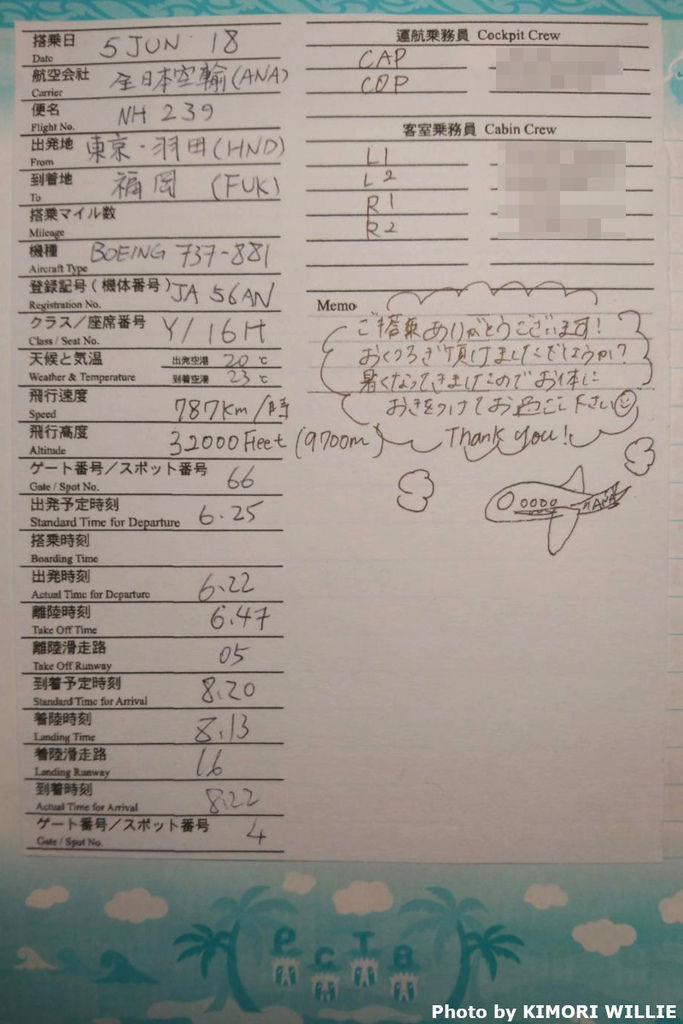 搭乗日 5 JUN 18
Date
航空会社 全日本空輸(ANA)
Carrier
便名 NH 239
Flight No.
出発地 東京・羽田(HND)
From
到着地 福岡 (FUK)
To
搭乗マイル数
Mileage
機種 BOEING 737-881
Aircraft Type
登録記号(機体番号) JA 56AN
Registration No.
クラス/座席番号 Y/16H
Class / Seat No.
天候と気温 出発空港 20 ℃
Weather & Temperature 到着空港 23 ℃
飛行速度 787km/時
Speed
飛行高度 32000 Feet (9700m)
Altitude
ゲート番号/スポット番号 66
Gate / Spot No.
出発予定時刻 6.25
Standard Time for Departure
搭乗時刻
Boarding Time
出発時刻 6.22
Actual Time for Departure
離陸時刻 6.47
Take Off Time
離陸滑走路 05
Take Off Runway
到着予定時刻 8.20
Standard Time for Arrival
着陸時刻 8.13
Landing Time
着陸滑走路 16
Landing Runway
到着時刻 8.22
Actual Time for Arrival
ゲート番号/スポット番号 4
Gate / Spot No.
運航乗務員 Cockpit Crew
CAP
COP
客室乗務員 Cabin Crew
L1
L2
R1
R2
Memo
ご搭乗ありがとうございます!
おくつろぎ頂けましたでしょうか?
暑くなってきましたのでお体に
お気をつけてお過ごし下さい
Thank you!
ANA
Photo by KIMORI WILLIE